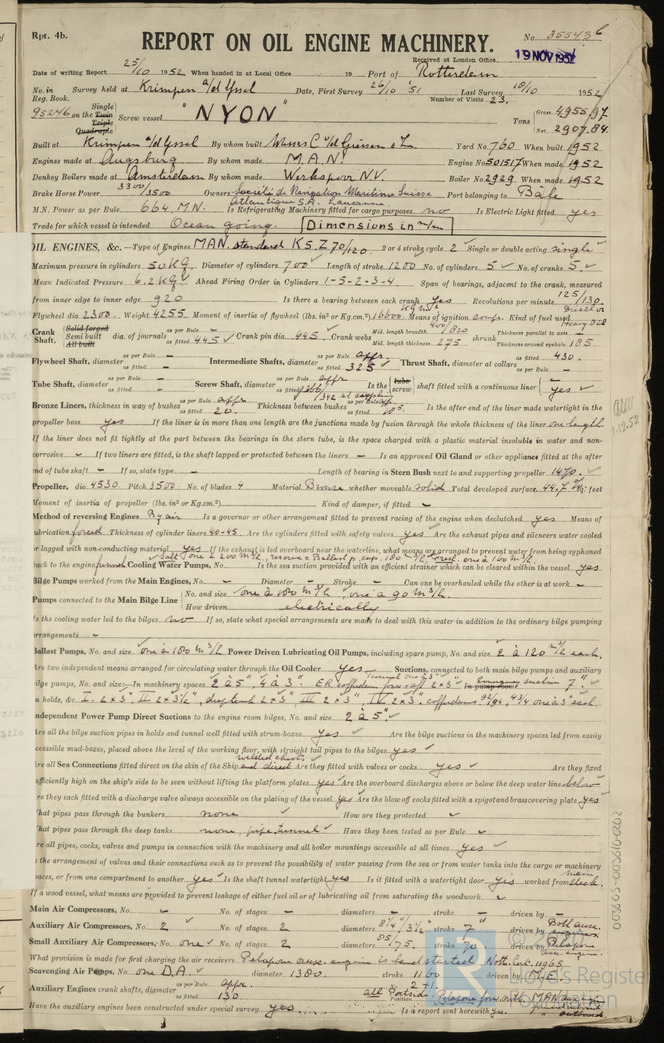 Rpt. 4b.
No. 355436
REPORT ON OIL ENGINE MACHINERY.
Received at London Office 19 NOV 1952
Date of writing Report 25/10 1952 When handed in at Local Office 19 Port of Rotterdam
No. in Reg. Book. Survey held at Krimpen a/d Yssel Date, First Survey 26/10 '51 Last Survey 18/10 1952
Number of Visits 23.
95246 on the Single Twin Triple Quadruple Screw vessel "NYON" Tons Gross 4955,97 Net 2907.84
Built at Krimpen a/d Yssel By whom built C. v/d Giessen & Zn. Yard No. 760 When built 1952
Engines made at Augsburg By whom made M.A.N. Engine No. 501517 When made 1952
Donkey Boilers made at Amsterdam By whom made Werkspoor N.V. Boiler No. 2929 When made 1952
Brake Horse Power 3300/3500 Owners Société de Navigation Maritime Suisse Atlantique S.A. Lausanne. Port belonging to Bâle
M.N. Power as per Rule 664 M.N. Is Refrigerating Machinery fitted for cargo purposes no Is Electric Light fitted yes
Trade for which vessel is intended Ocean going. Dimensions in m/m
OIL ENGINES, &c.—Type of Engines MAN. standard K5Z 70/120 2 or 4 stroke cycle 2 Single or double acting single
Maximum pressure in cylinders 50 KG Diameter of cylinders 700 Length of stroke 1200 No. of cylinders 5 No. of cranks 5
Mean Indicated Pressure 6.2 KG Ahead Firing Order in Cylinders 1-5-2-3-4 Span of bearings, adjacent to the crank, measured
from inner edge to inner edge 920 Is there a bearing between each crank yes Revolutions per minute 125/130
Flywheel dia. 2300. Weight 4255 Moment of inertia of flywheel (lbs. in² or Kg.cm²) 16600 Means of ignition compr. Kind of fuel used Diesel or Heavy Oil
Crank Shaft, Solid forged Semi built All built dia. of journals as per Rule - as fitted 445 Crank pin dia. 445 Crank webs Mid. length breadth Mid. length thickness 275 shrunk Thickness parallel to axis - Thickness around eyehole 185
Flywheel Shaft, diameter as per Rule - as fitted - Intermediate Shafts, diameter as per Rule appr. as fitted 325 Thrust Shaft, diameter at collars as fitted 430.
Tube Shaft, diameter as per Rule - as fitted - Screw Shaft, diameter as per Rule appr as fitted Is the tube screw shaft fitted with a continuous liner yes
Bronze Liners, thickness in way of bushes as per Rule appr as fitted 20. Thickness between bushes as per Rule as fitted Is the after end of the liner made watertight in the
propeller boss yes If the liner is in more than one length are the junctions made by fusion through the whole thickness of the liner one length
If the liner does not fit tightly at the part between the bearings in the stern tube, is the space charged with a plastic material insoluble in water and non-
corrosive - If two liners are fitted, is the shaft lapped or protected between the liners - Is an approved Oil Gland or other appliance fitted at the after
end of tube shaft - If so, state type - Length of bearing in Stern Bush next to and supporting propeller 1470.
Propeller, dia. 4530 Pitch 3500 No. of blades 4 Material Bronze whether moveable solid Total developed surface 44.7 sq. feet
Moment of inertia of propeller (lbs. in² or Kg.cm²) Kind of damper, if fitted -
Method of reversing Engines By air Is a governor or other arrangement fitted to prevent racing of the engine when declutched yes Means of
lubrication forced Thickness of cylinder liners 40-45 Are the cylinders fitted with safety valves yes Are the exhaust pipes and silencers water cooled
or lagged with non-conducting material yes If the exhaust is led overboard near the waterline, what means are arranged to prevent water from being syphoned
back to the engine funnel Cooling Water Pumps, No. Salt one à 200 m³/h, reserve = Ballast p. cap. 180 m³/h, fresh one à 100 m³/h. Is the sea suction provided with an efficient strainer which can be cleared within the vessel yes
Bilge Pumps worked from the Main Engines, No. - Diameter - Stroke - Can one be overhauled while the other is at work -
Pumps connected to the Main Bilge Line No. and size one à 180 m³/h one à 90 m³/h.
How driven electrically
Is the cooling water led to the bilges no If so, state what special arrangements are made to deal with this water in addition to the ordinary bilge pumping
arrangements -
Ballast Pumps, No. and size one à 180 m³/h Power Driven Lubricating Oil Pumps, including spare pump, No. and size 2 à 120 m³/h each.
Are two independent means arranged for circulating water through the Oil Cooler yes Suctions, connected to both main bilge pumps and auxiliary
bilge pumps, No. and size:—In machinery spaces 2 à 5", 4 à 3". Tunnel one 3" ER cofferdam fore & aft 2x3" In pump room Emergency suction 7"
in holds, &c. I. 2x3", II 2x3½", deeptank 2x3", III 2x3", IV 2x3", cofferdams 92/94, 43/4 one à 3" each.
Independent Power Pump Direct Suctions to the engine room bilges, No. and size 2 à 5"
Are all the bilge suction pipes in holds and tunnel well fitted with strum-boxes yes Are the bilge suctions in the machinery spaces led from easily
accessible mud-boxes, placed above the level of the working floor, with straight tail pipes to the bilges yes
Are all Sea Connections fitted direct on the skin of the Ship welded chests and direct Are they fitted with valves or cocks yes Are they fixed
sufficiently high on the ship's side to be seen without lifting the platform plates yes Are the overboard discharges above or below the deep water line below
Are they each fitted with a discharge valve always accessible on the plating of the vessel yes Are the blow off cocks fitted with a spigot and brass covering plate yes
What pipes pass through the bunkers none How are they protected -
What pipes pass through the deep tanks none, pipe tunnel Have they been tested as per Rule -
Are all pipes, cocks, valves and pumps in connection with the machinery and all boiler mountings accessible at all times yes
Is the arrangement of valves and their connections such as to prevent the possibility of water passing from the sea or from water tanks into the cargo or machinery
spaces, or from one compartment to another yes Is the shaft tunnel watertight yes Is it fitted with a watertight door yes worked from main deck.
If a wood vessel, what means are provided to prevent leakage of either fuel oil or of lubricating oil from saturating the woodwork -
Main Air Compressors, No. - No. of stages - diameters - stroke - driven by -
Auxiliary Air Compressors, No. 2 No. of stages 2 diameters 8¼"/3½" stroke 7" driven by Both aux. engines.
Small Auxiliary Air Compressors, No. one No. of stages 2 diameters 85/75 stroke 70 driven by Pelapone aux. engine.
What provision is made for first charging the air receivers Pelapone aux. engine is hand started. Nott. Cert. 11965
Scavenging Air Pumps, No. one D.A. diameter 1380. stroke 1160 driven by M.E.
Auxiliary Engines crank shafts, diameter as per Rule appr. as fitted 130. No. 2+1. Position all Portside. Pelapone forw.
Have the auxiliary engines been constructed under special survey yes Is a report sent herewith yes.
003605-003616-0202
© Lloyd's Register Foundation